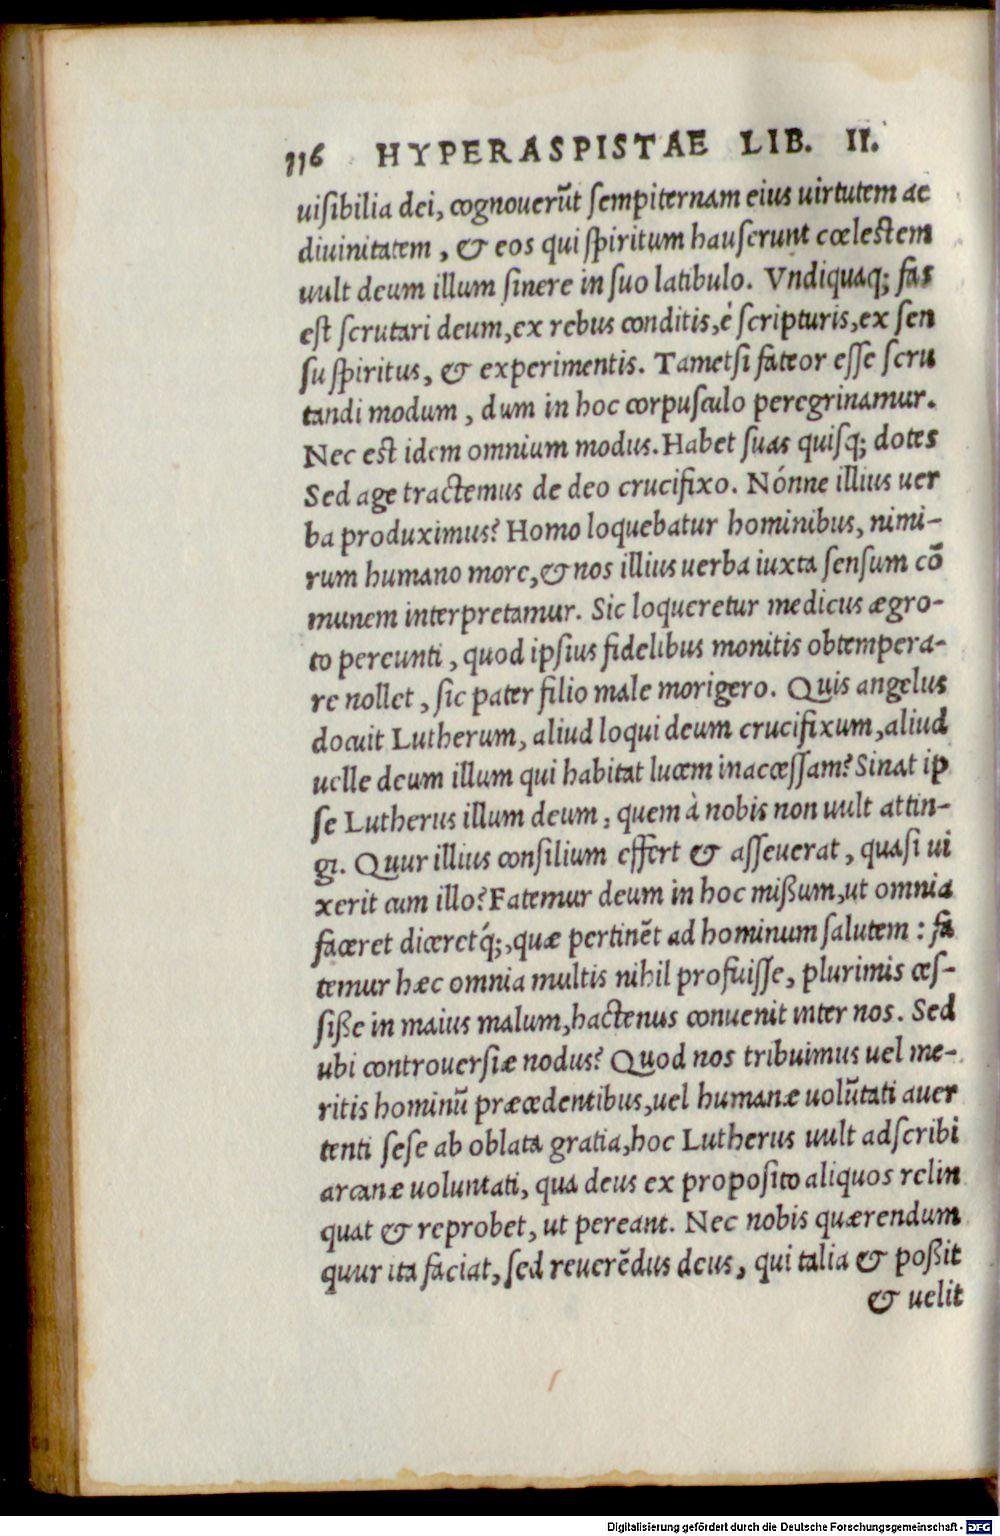 116 HYPERASPISTAE LIB. II.
uisibilia dei, cognouerũt sempiternam eius uirtutem ac
diuinitatem, & eos qui spiritum hauserunt cœlestem
uult deum illum sinere in suo latibulo. Vndiquaq; fas
est scrutari deum, ex rebus conditis, è scripturis, ex sen
su spiritus, & experimentis. Tametsi fateor esse scru
tandi modum, dum in hoc corpusculo peregrinamur.
Nec est idem omnium modus. Habet suas quisq; dotes
Sed age tractemus de deo crucifixo. Nónne illius uer
ba produximus? Homo loquebatur hominibus, nimi-
rum humano more, & nos illius uerba iuxta sensum cõ
munem interpretamur. Sic loqueretur medicus ægro-
to pereunti, quod ipsius fidelibus monitis obtempera-
re nollet, sic pater filio male morigero. Quis angelus
docuit Lutherum, aliud loqui deum crucifixum, aliud
uelle deum illum qui habitat lucem inaccessam? Sinat ip
se Lutherus illum deum, quem à nobis non uult attin-
gi. Quur illius consilium effert & asseuerat, quasi ui
xerit cum illo? Fatemur deum in hoc mißum, ut omnia
faceret diceretq́;, quæ pertinẽt ad hominum salutem: fa
temur hæc omnia multis nihil profuisse, plurimis ces-
siße in maius malum, hactenus conuenit inter nos. Sed
ubi controuersiæ nodus? Quod nos tribuimus uel me-
ritis hominũ præcedentibus, uel humanæ uolũtati auer
tenti sese ab oblata gratia, hoc Lutherus uult adscribi
arcanæ uoluntati, qua deus ex proposito aliquos relin
quat & reprobet, ut pereant. Nec nobis quærendum
quur ita faciat, sed reuerẽdus deus, qui talia & poßit
& uelit
Digitalisierung gefördert durch die Deutsche Forschungsgemeinschaft - DFG